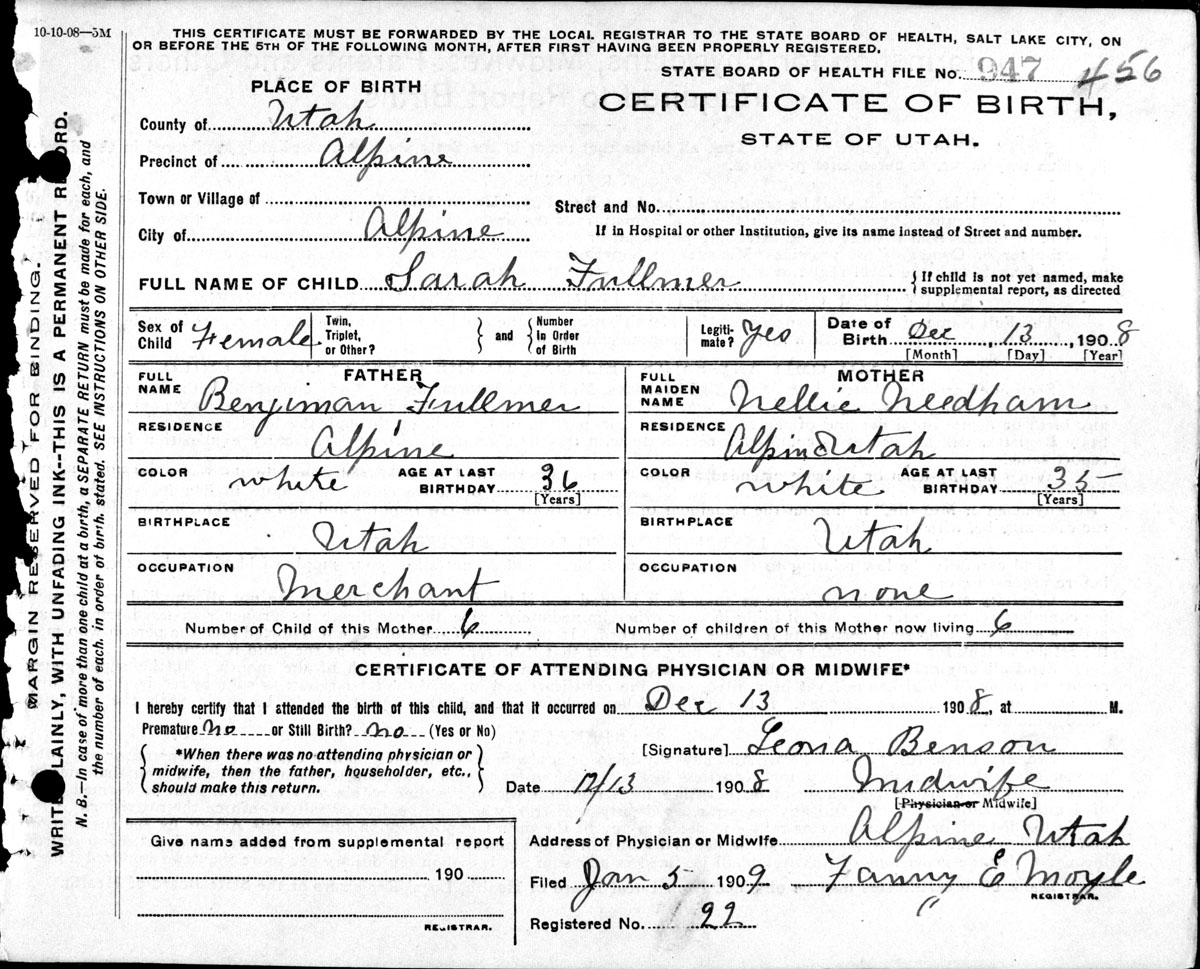 10-10-08—5M
THIS CERTIFICATE MUST BE FORWARDED BY THE LOCAL REGISTRAR TO THE STATE BOARD OF HEALTH, SALT LAKE CITY, ON
OR BEFORE THE 5TH OF THE FOLLOWING MONTH, AFTER FIRST HAVING BEEN PROPERLY REGISTERED.
STATE BOARD OF HEALTH FILE No. 947 456
PLACE OF BIRTH
CERTIFICATE OF BIRTH,
STATE OF UTAH.
County of Utah
Precinct of Alpine
Town or Village of
Street and No.
City of Alpine
If in Hospital or other Institution, give its name instead of Street and number.
FULL NAME OF CHILD Sarah Fullmer { If child is not yet named, make supplemental report, as directed
Sex of Child Female Twin, Triplet, or Other? } and { Number In Order of Birth Legitimate? Yes Date of Birth Dec, 13, 1908
[Month] [Day] [Year]
FATHER
FULL NAME Benjiman Fullmer
RESIDENCE Alpine
COLOR white AGE AT LAST BIRTHDAY 36 [Years]
BIRTHPLACE Utah
OCCUPATION Merchant
MOTHER
FULL MAIDEN NAME Nellie Needham
RESIDENCE Alpine Utah
COLOR white AGE AT LAST BIRTHDAY 35 [Years]
BIRTHPLACE Utah
OCCUPATION none
Number of Child of this Mother 6 Number of children of this Mother now living 6
CERTIFICATE OF ATTENDING PHYSICIAN OR MIDWIFE*
I hereby certify that I attended the birth of this child, and that it occurred on Dec 13 1908, at M.
Premature No or Still Birth? No (Yes or No)
{ *When there was no attending physician or midwife, then the father, householder, etc., should make this return. }
[Signature] Leona Benson
Date 12/13 1908 Midwife
[Physician or Midwife]
Give name added from supplemental report
190
REGISTRAR.
Address of Physician or Midwife Alpine Utah
Filed Jan 5 1909 Fanny E Moyle
REGISTRAR.
Registered No. 22
MARGIN RESERVED FOR BINDING.
WRITE PLAINLY, WITH UNFADING INK--THIS IS A PERMANENT RECORD.
N. B.—In case of more than one child at a birth, a SEPARATE RETURN must be made for each, and
the number of each, in order of birth, stated. SEE INSTRUCTIONS ON OTHER SIDE.